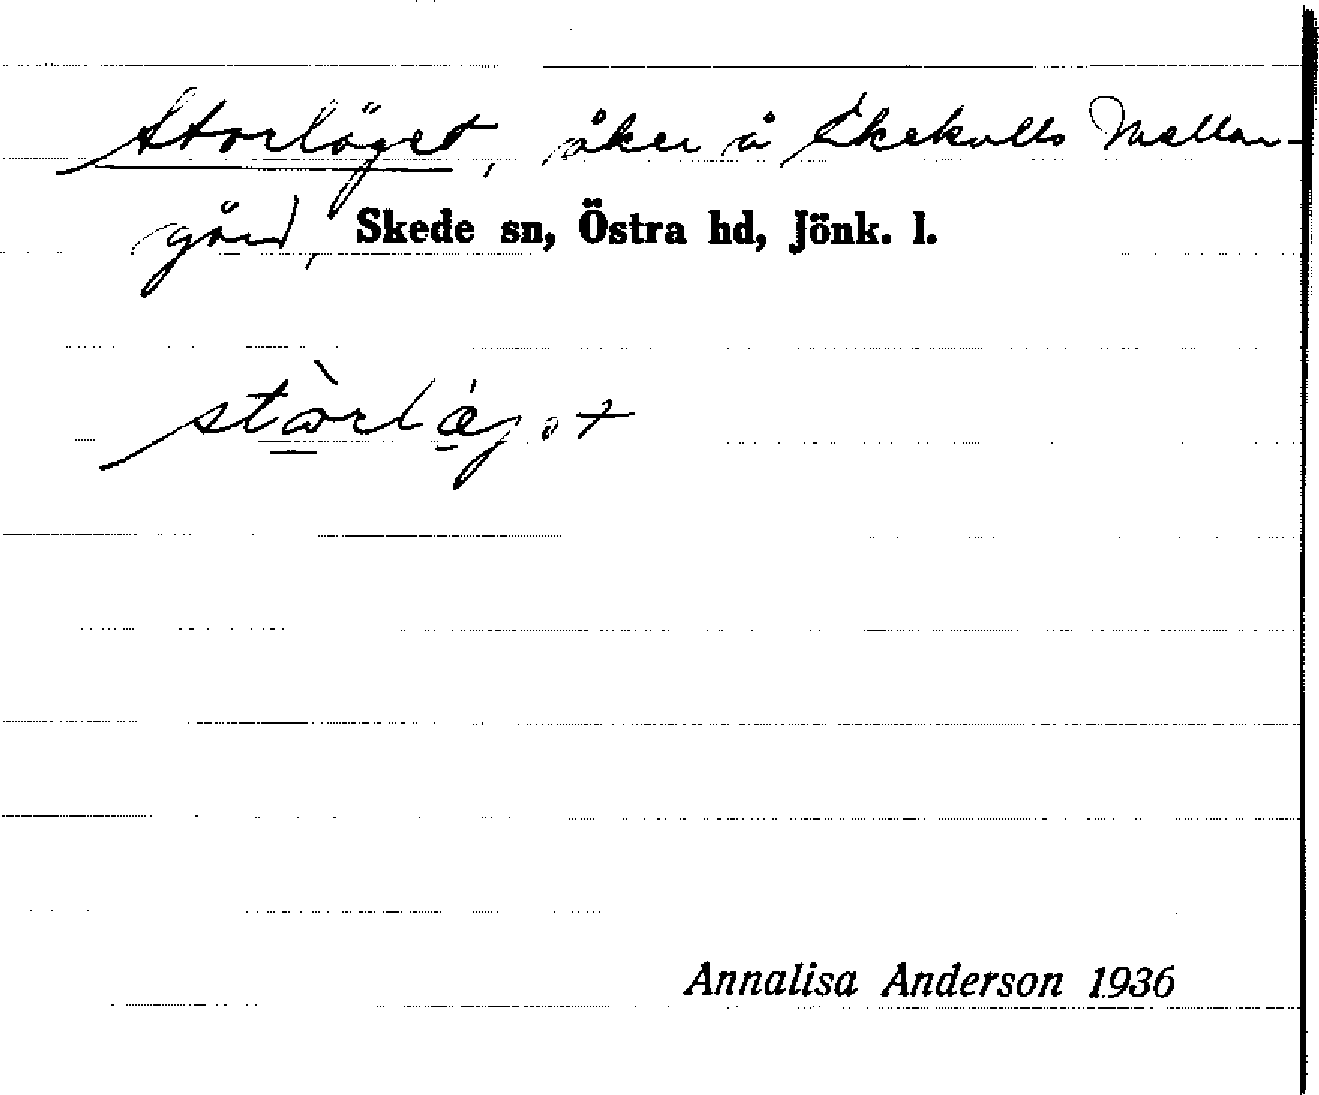 Storläget, åker å Ekekulls Mellan-
gård, Skede sn, Östra hd, Jönk. l.
Annalisa Anderson 1936